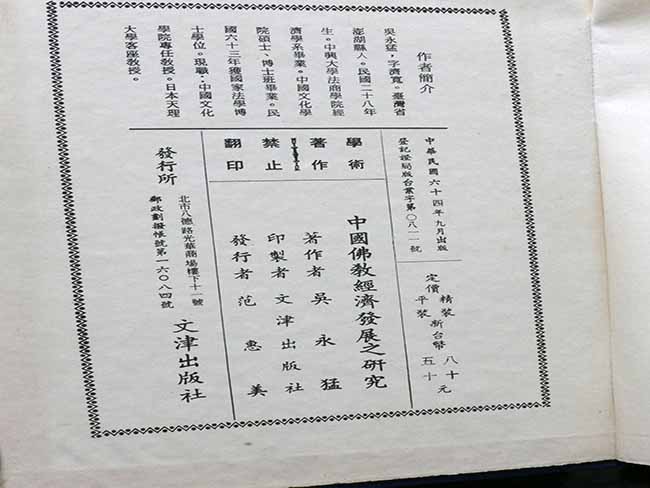 作者簡介
吳永猛。字濟寬。臺灣省
澎湖縣人。民國二十八年
生。中興大學法商學院經
濟學系畢業。中國文化學
院碩士、博士班畢業。民
國六十三年獲國家法學博
士學位。現職：中國文化
學院專任教授。日本天理
大學客座教授。
中華民國六十四年九月出版
登記證局版台業字第〇八二一號
定價 精裝 新台幣 八十元
平裝 五十
學術
著作
禁止
翻印
中國佛教經濟發展之研究
著作者 吳永猛
印製者 文津出版社
發行者 范惠美
發行所
北市八德路光華商場樓下十一號
郵政劃撥帳號第一六〇八四號
文津出版社